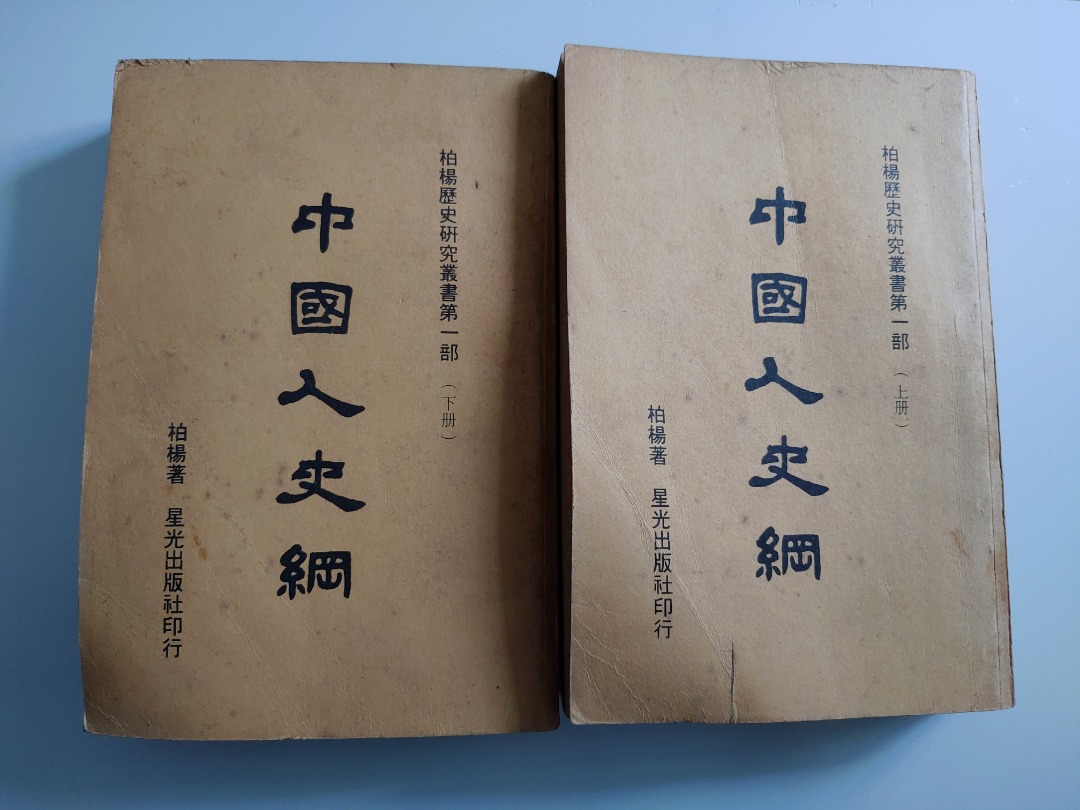 柏楊歷史研究叢書第一部（上册）
中國人史綱
柏楊著 星光出版社印行
柏楊歷史研究叢書第一部（下册）
中國人史綱
柏楊著 星光出版社印行